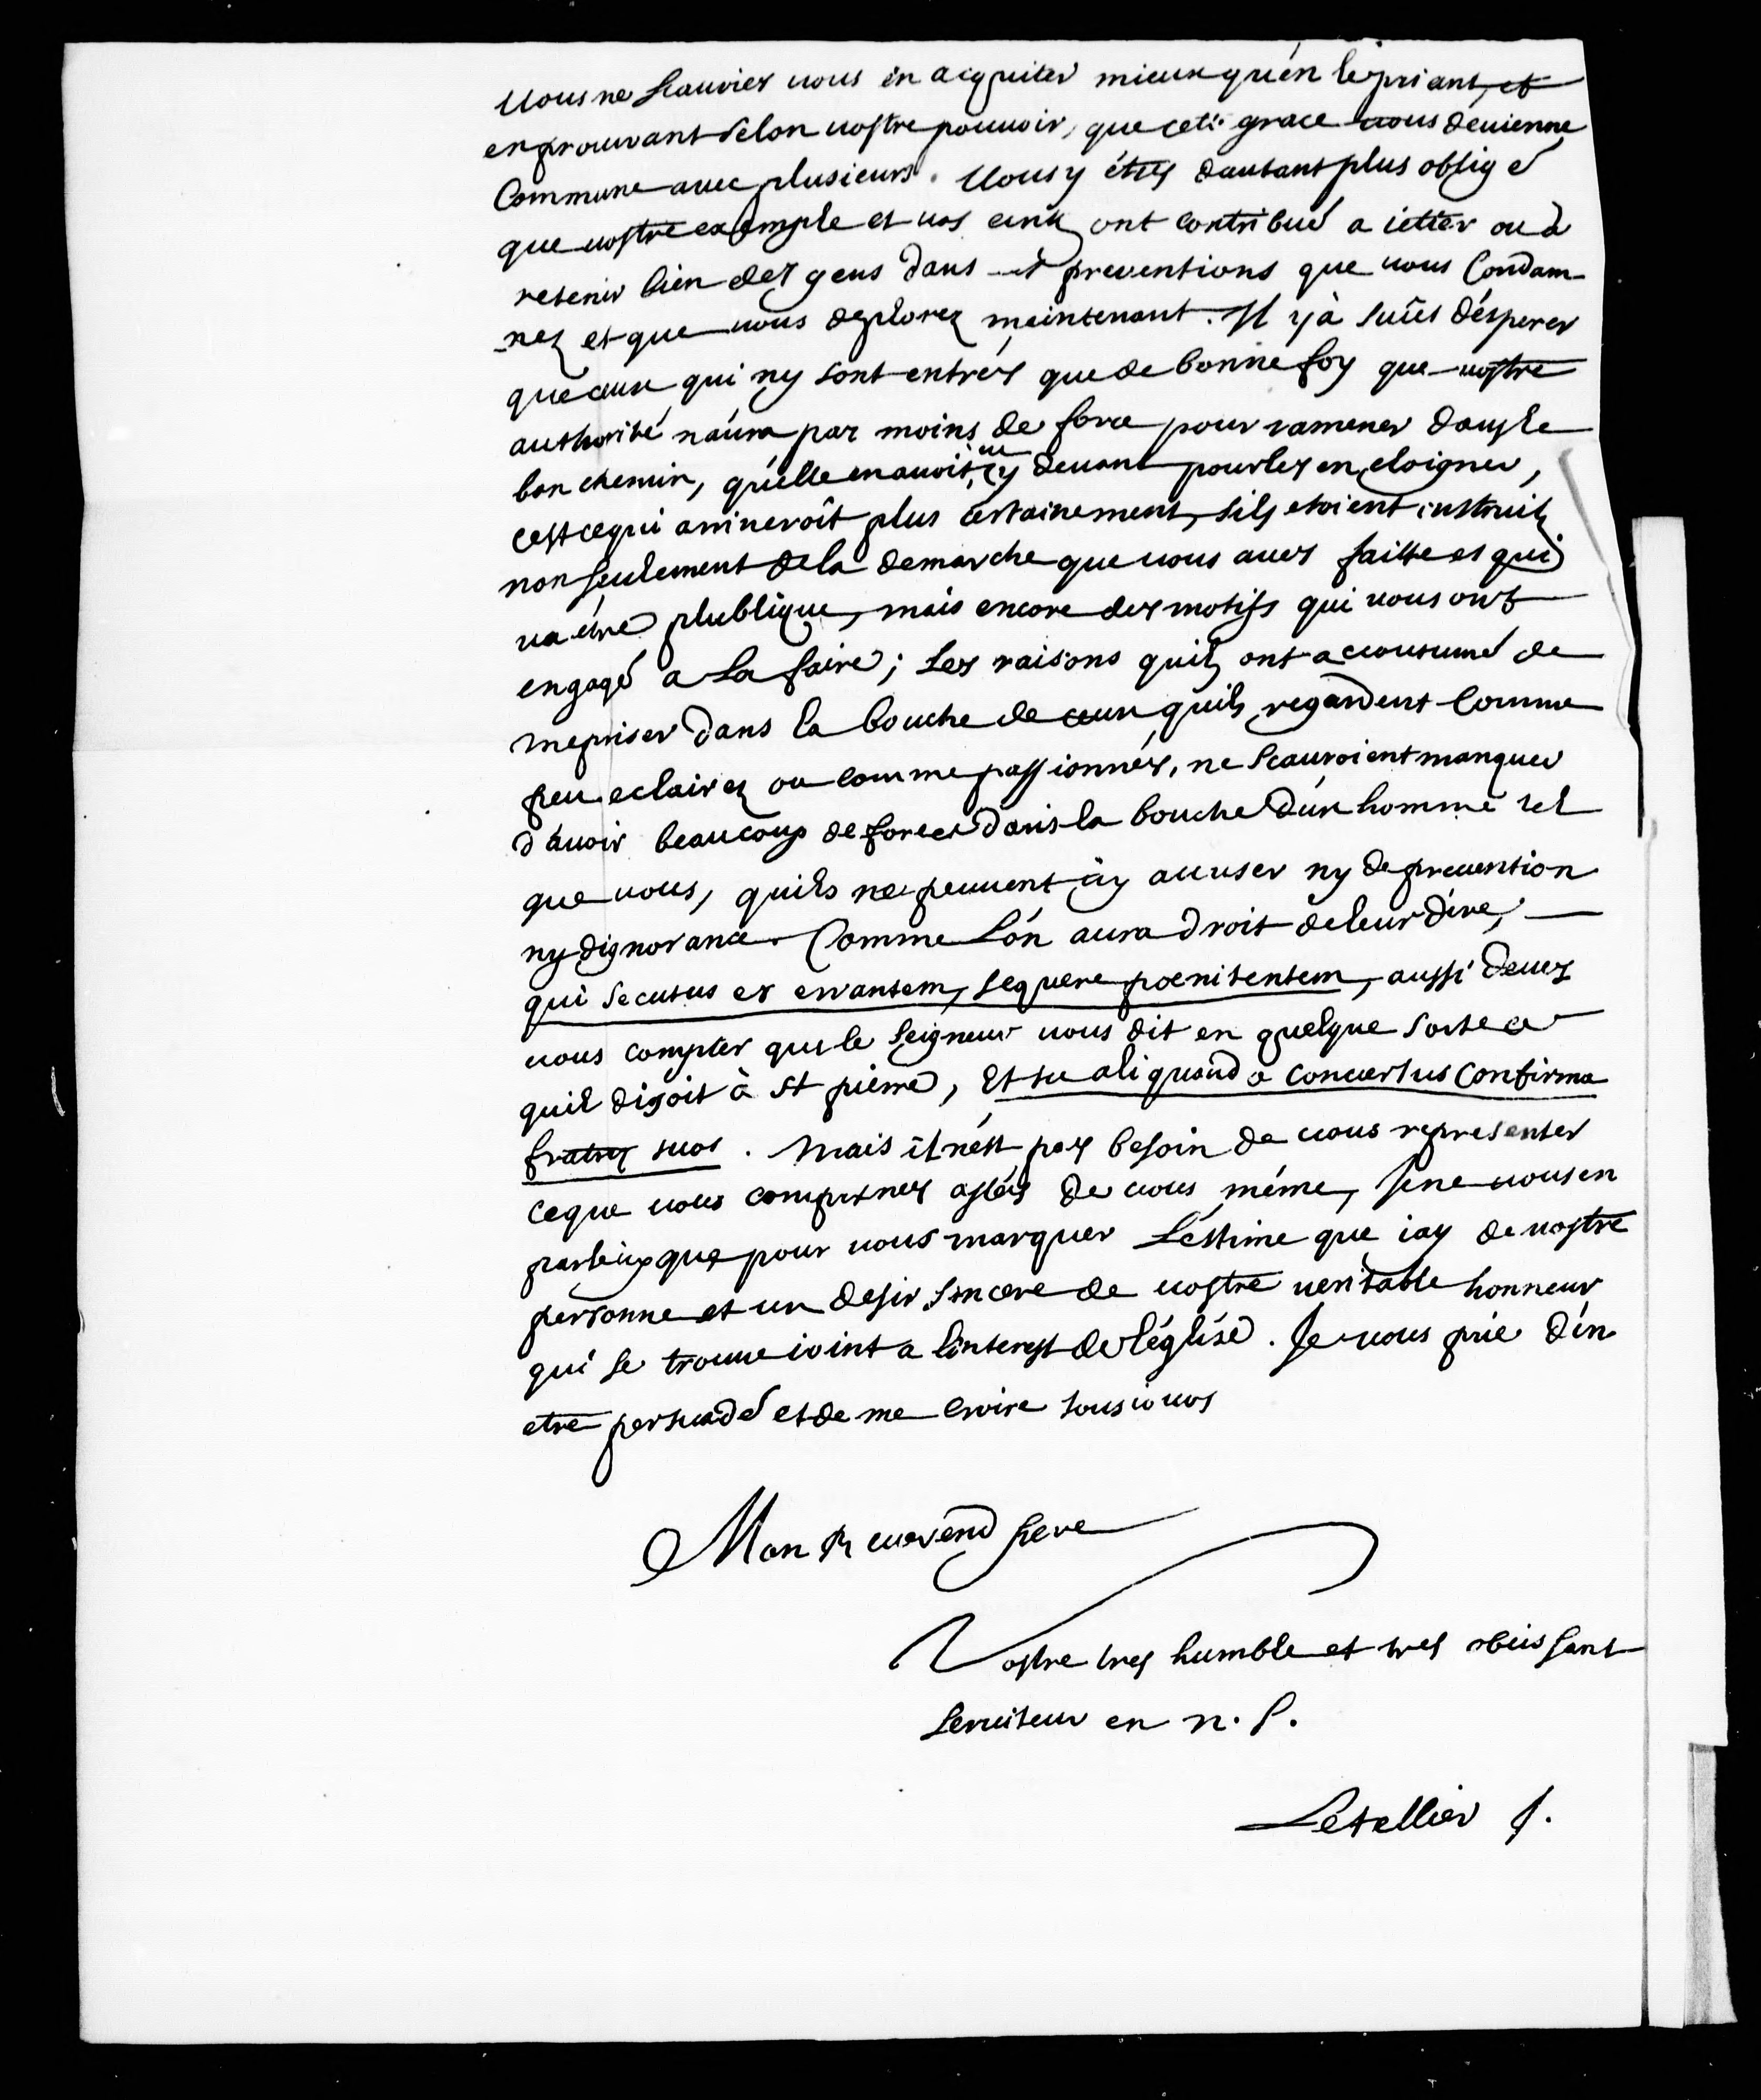 Vous ne scauriez vous en acquiter mieux qu'en le priant, et
en prouvant selon vostre pouvoir, que cette grace vous devienne
Commune avec plusieurs. Vous y étes dautant plus obligé
que vostre exemple et vos ont contribué a ietter ou à
retenir bien des gens dans preventions que vous Condam-
-nez et que vous deplorez maintenant. Il y à suiet d'ésperer
que ceux qui ny sont entrés que de bonne foy que vostre
authorité n'aura pas moins de force pour ramener dans le
bon chemin, qu'elle en avoit cy devant pour les en eloigner,
cest ce qui arriveroît plus certainement, sils etoient instruits
non seulement de la demarche que vous avez faitte et qui
va etre plublique, mais encore des motifs qui vous ont
engagé a la faire; Les raisons quils ont accoutumé de
mepriser dans la bouche de ceux quils regardent comme
peu eclairez ou comme passionnés, ne scauroient manquer
d'avoir beaucoup de force dans la bouche d'un homme tel
que vous, quils ne peuvent accuser ny de prevention
ny dignorance. Comme L'on aura droit de leur dire,
qui secutus es errantem, sequere poenitentem, aussi devez
vous compter que le Seigneur vous dit en quelque sorte ce
quil disoit à St pierre, Et tu aliquando conversus Confirma
fratres tuos. Mais il n'est pas besoin de vous representer
ce que vous comprenez assés de vous méme, Je ne vous en
parle que pour vous marquer L'estime que iay de vostre
personne et un desir sincere de vostre veritable honneur
qui se trouve ioint a linterest de l'église. Je vous prie d'en
etre persuadé et de me croire tousiours
Mon Reverend Pere
Vostre tres humble et tres obeissant
Serviteur en n. S.
Letellier J.